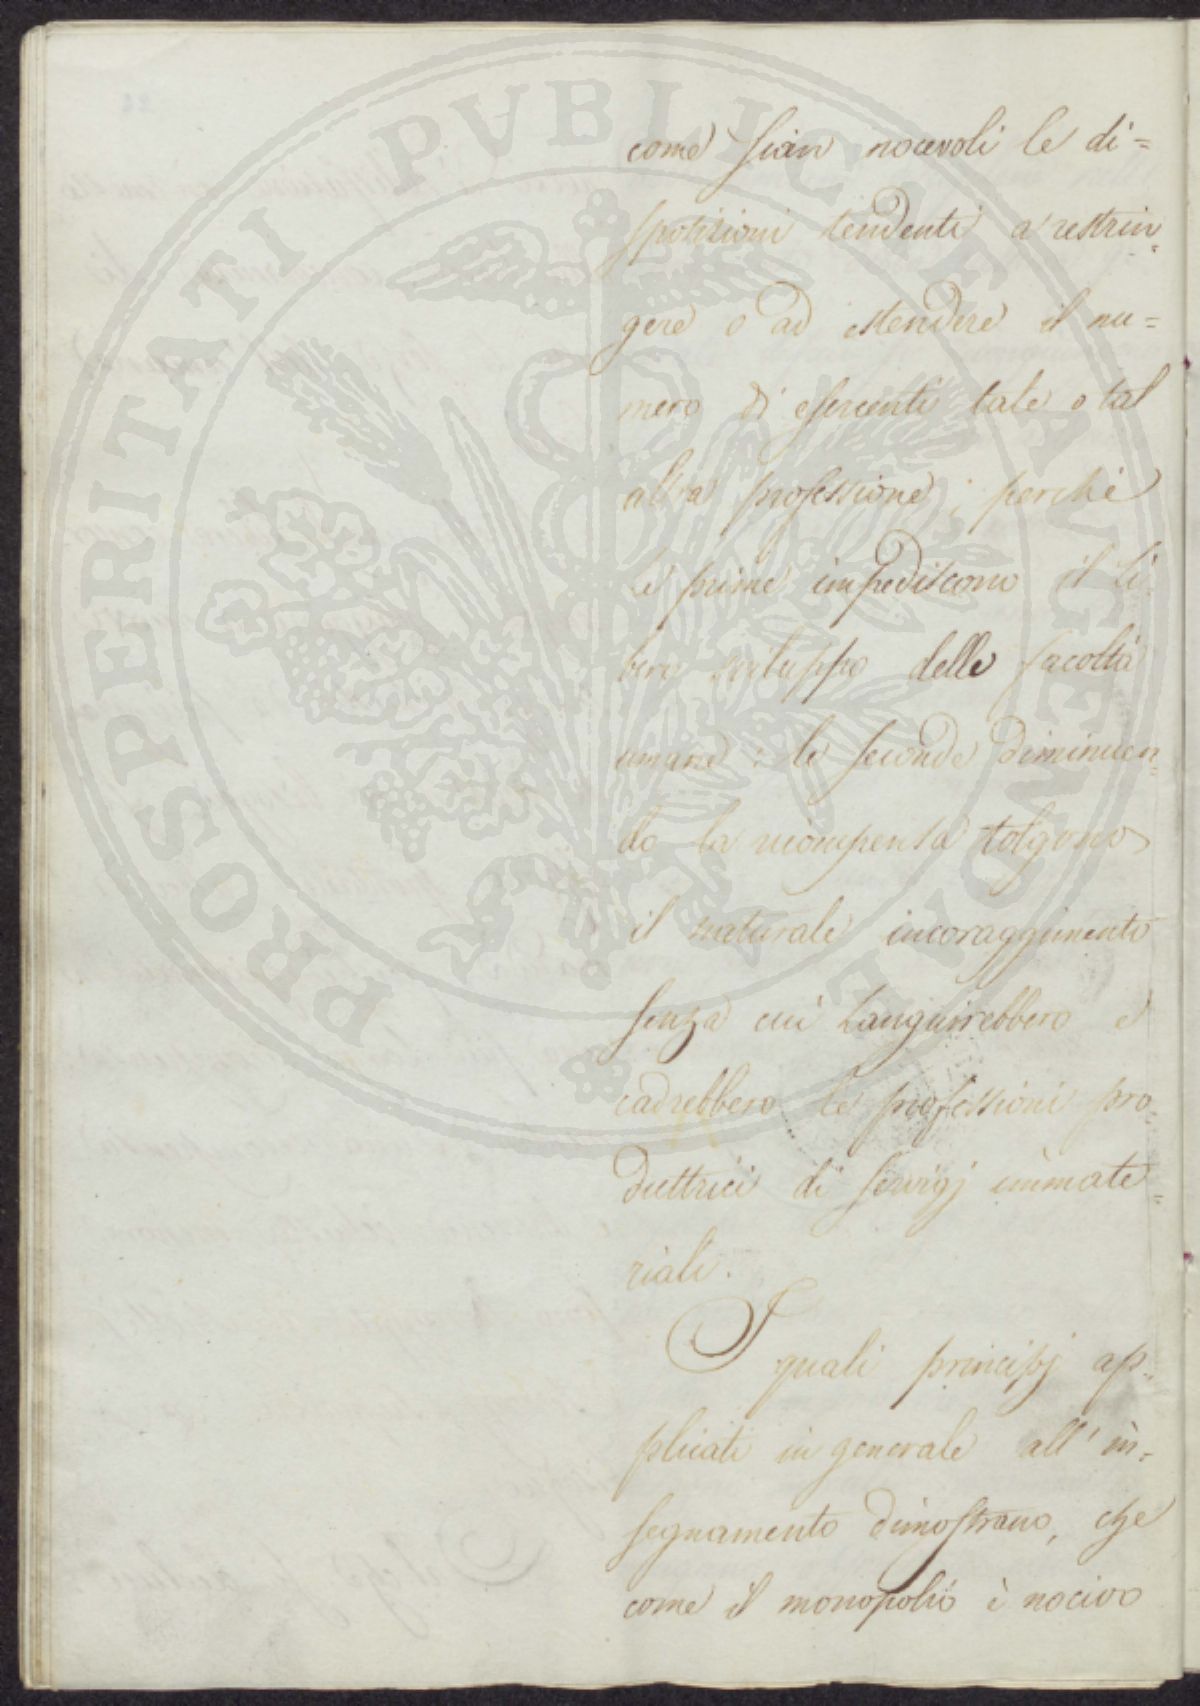 come sian nocevoli le di=
sposizioni tendenti a restrin=
gere o ad estendere il nu=
mero di esercenti tale o tal
altra professione; perchè
le prime impediscono il li=
bero sviluppo delle facoltà
umane: le seconde diminuen=
do la ricompensa tolgono
il naturale incoraggimento
senza cui languirebbero e
cadrebbero le professioni pro=
duttrici di servigj immate=
riali.
I quali principj ap=
plicati in generale all'in=
segnamento dimostrano, che
come il monopolio è nocivo
PROSPERITATI PVBLICAE AVGENDAE